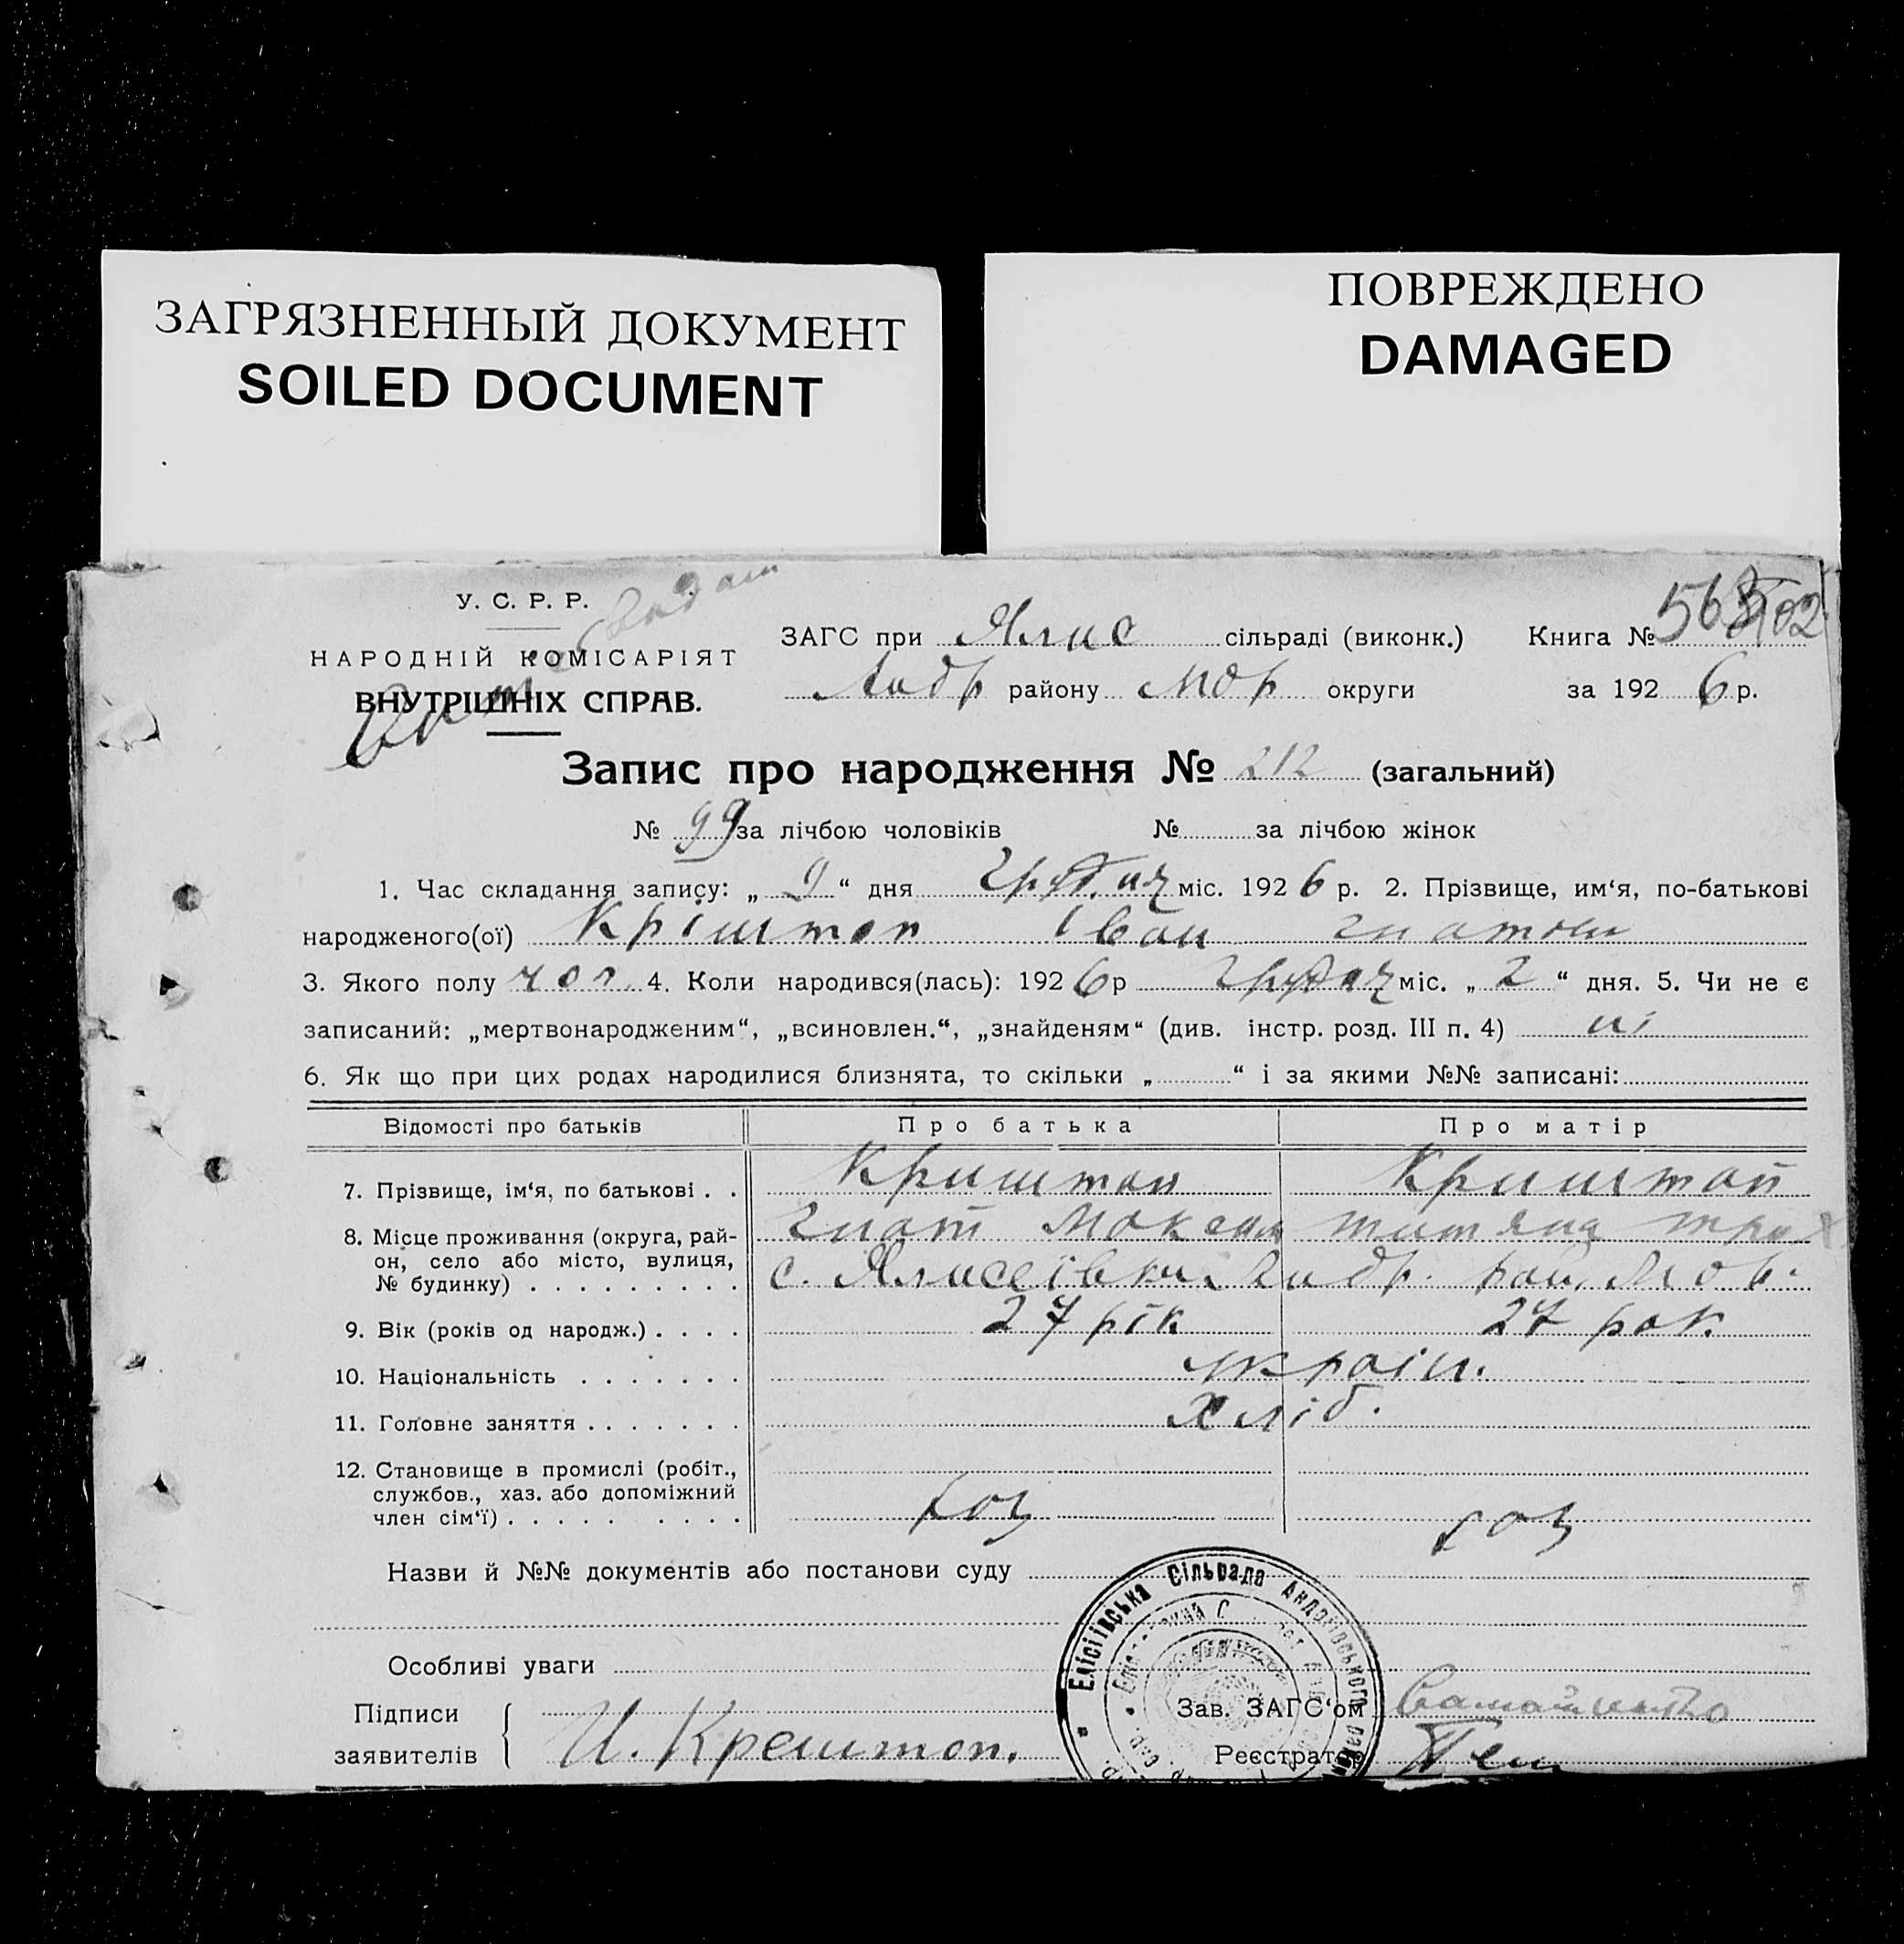 ЗАГРЯЗНЕННЫЙ ДОКУМЕНТ
SOILED DOCUMENT
ПОВРЕЖДЕНО
DAMAGED
У. С. Р. Р.
НАРОДНІЙ КОМІСАРІЯТ
ВНУТРІШНІХ СПРАВ.
ЗАГС при Ялис сільраді (виконк.) Книга №
Андр району мор округи за 192 6 р.
Запис про народження № 212 (загальний)
№ 99 за лічбою чоловіків № за лічбою жінок
1. Час складання запису: „ 9 “ дня міс. 192 6 р. 2. Прізвище, им‘я, по-батькові
народженого(ої) Кріштоп Іван гнатов
3. Якого полу чол. 4. Коли народився(лась): 192 6 р міс. „ 2 “ дня. 5. Чи не є
записаний: „мертвонародженим“, „всиновлен.“, „знайденям“ (див. інстр. розд. III п. 4) ні
6. Як що при цих родах народилися близнята, то скільки „ “ і за якими №№ записані:
Відомості про батьків Про батька Про матір
7. Прізвище, ім‘я, по батькові . . Криштоп Криштоп
8. Місце проживання (округа, рай- гнат Максим
он, село або місто, вулиця, с. Ялисеївка Андр. рай, Мор.
№ будинку) . . . . . . . . .
9. Вік (років од народж.) . . . . 27 рік 27 рок.
10. Національність . . . . . . . україн.
11. Головне заняття . . . . . . . Хліб.
12. Становище в промислі (робіт.,
службов., хаз. або допоміжний
член сім‘ї) . . . . . . . . . . хоз хоз
Назви й №№ документів або постанови суду
Елісіївська Сільрада Андріївського
Особливі уваги
Підписи Зав. ЗАГС‘ом
заявителів И. Крештоп. Реєстратор